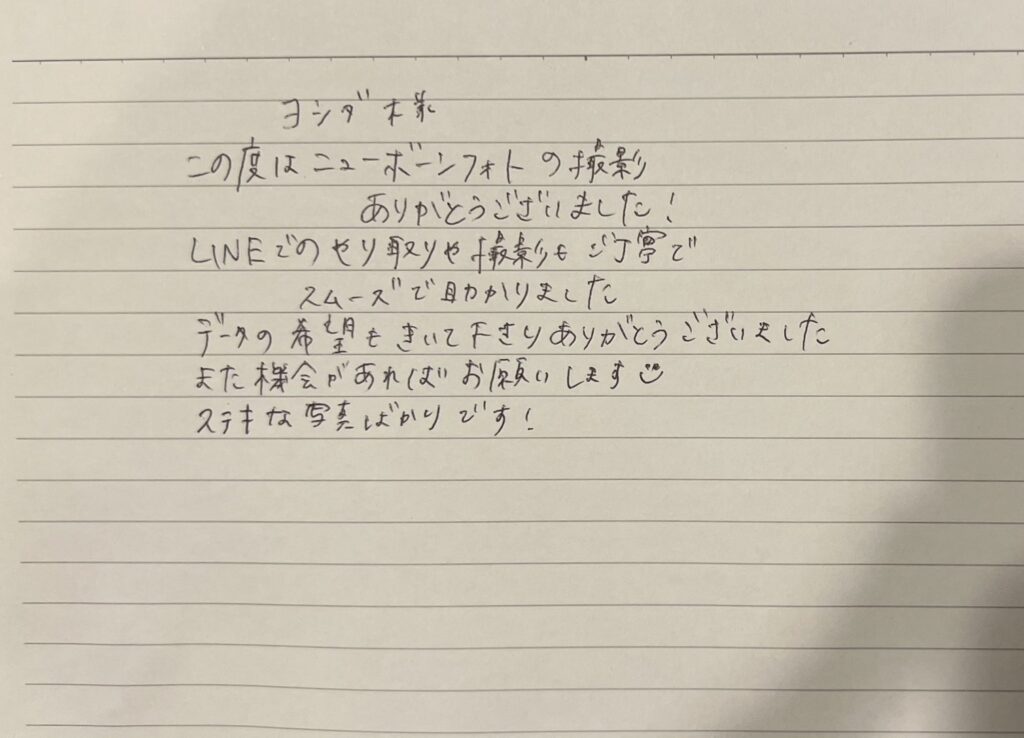 ヨシダ様
この度はニューボーンフォトの撮影
ありがとうございました!
LINEでのやり取りや撮影もご丁寧で
スムーズで助かりました
データの希望もきいて下さりありがとうございました
また機会があればお願いします
ステキな写真ばかりです!